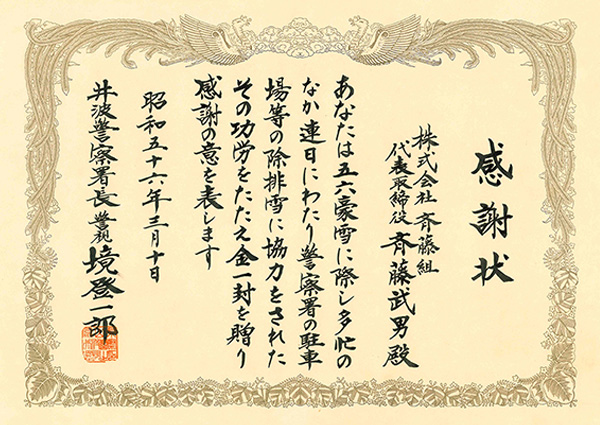 感謝状
株式会社 斉藤組
代表取締役 斉藤武男殿
あなたは五六豪雪に際し多忙の
なか連日にわたり警察署の駐車
場等の除排雪に協力をされた
その功労をたたえ金一封を贈り
感謝の意を表します
昭和五十六年三月十日
井波警察署長 警視 境登一郎